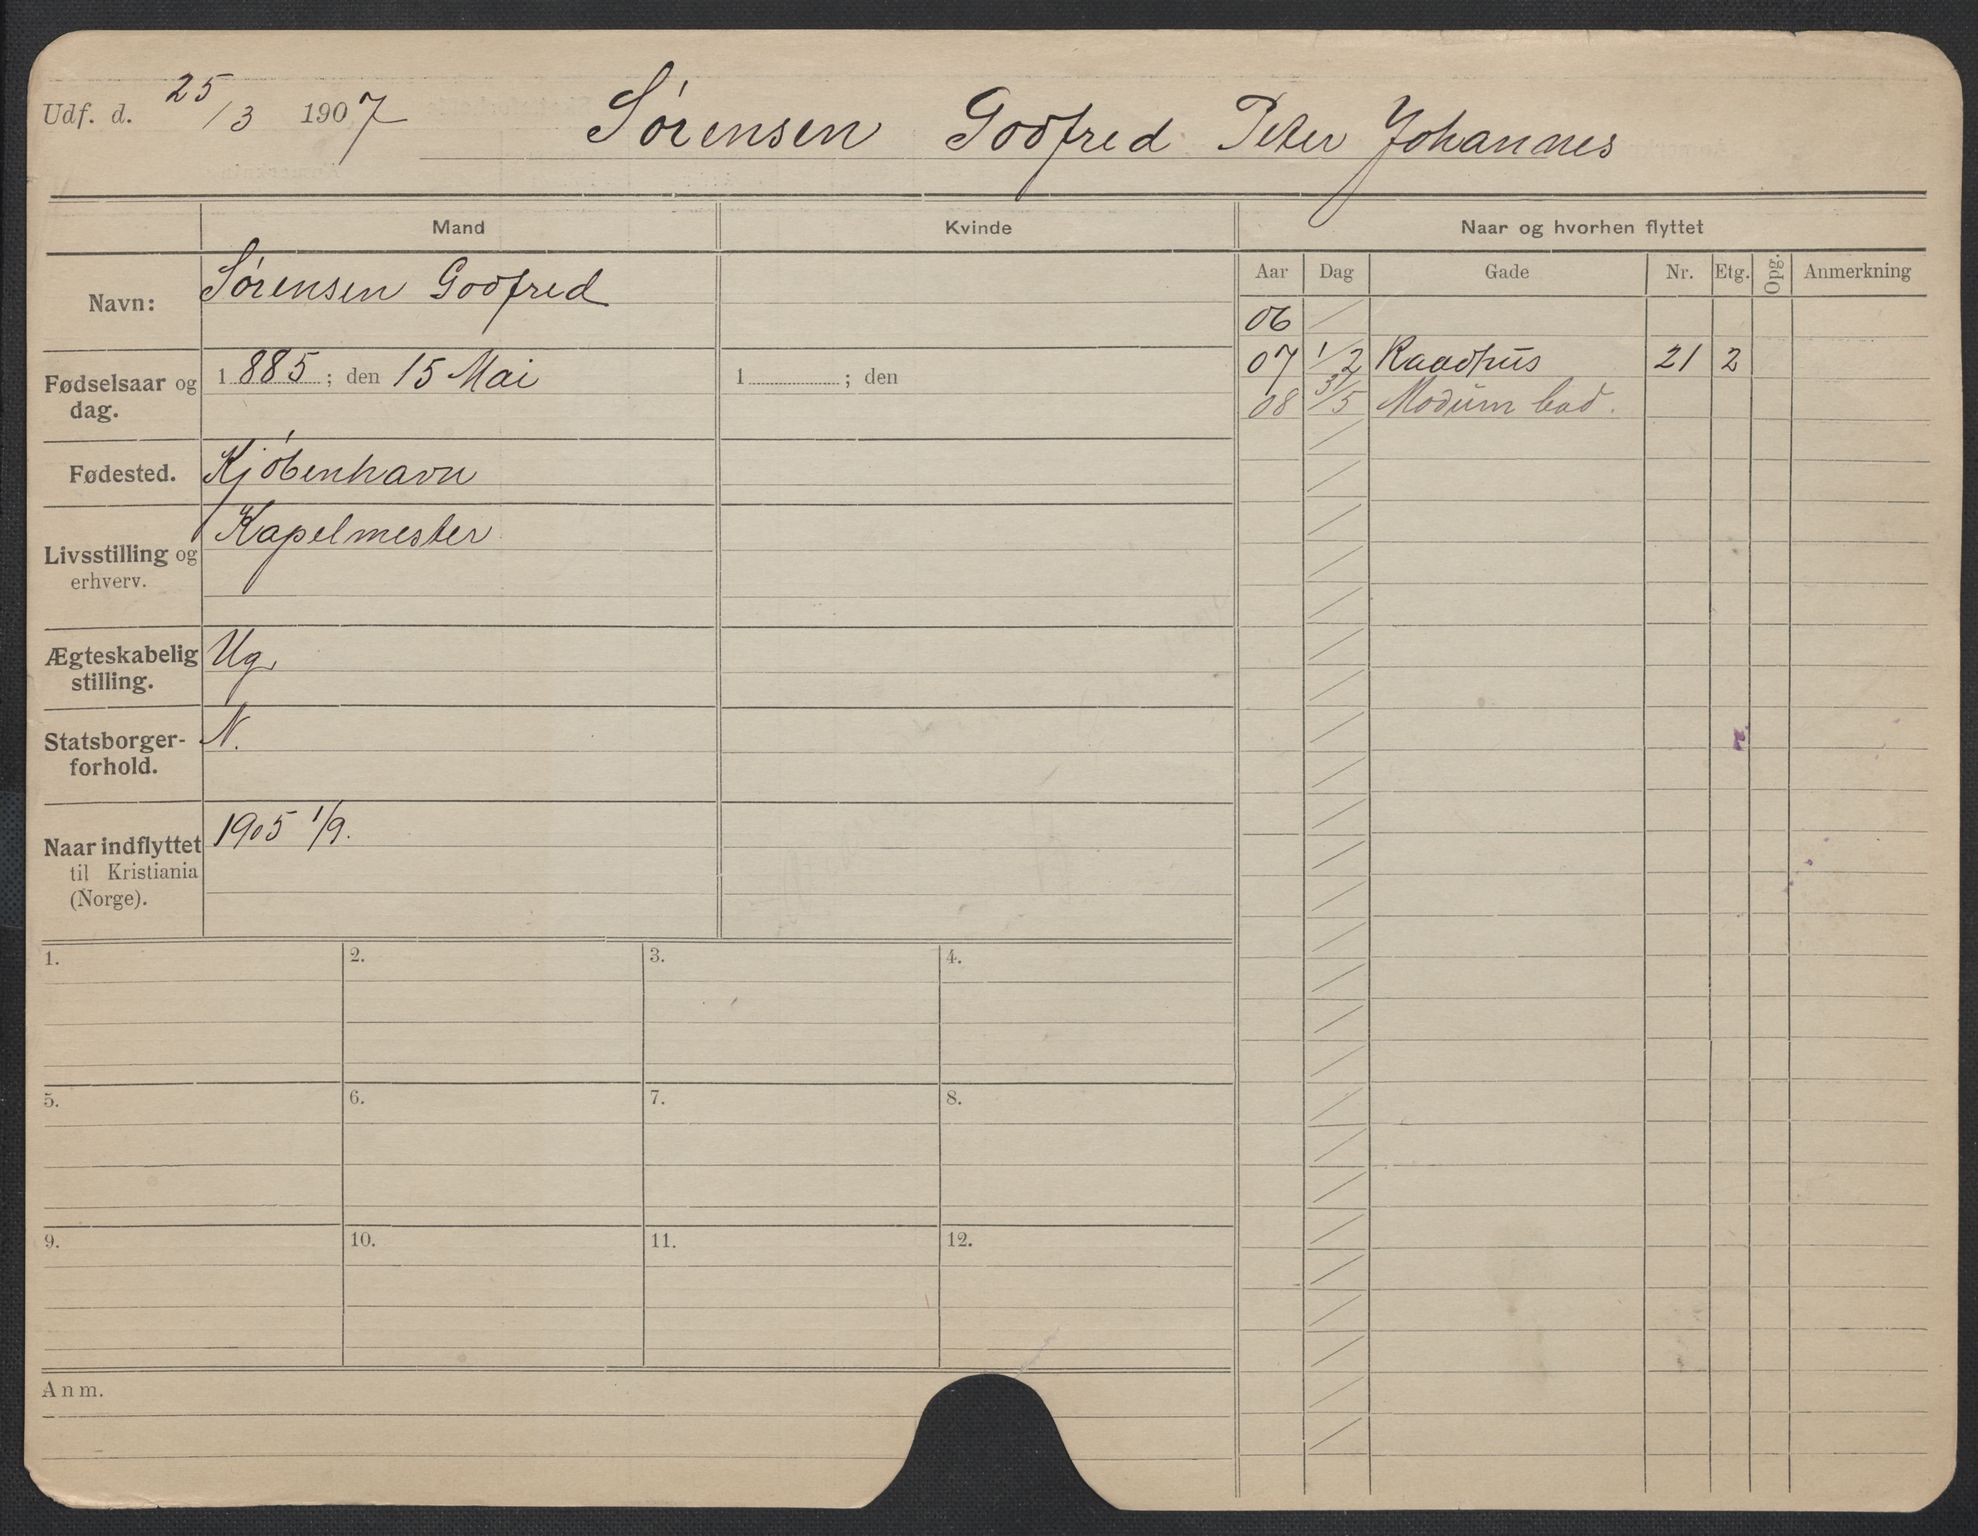 Udf. d. 25/3 1907 Sørensen Godfred Peter Johannes
Mand Kvinde Naar og hvorhen flyttet
Aar Dag Gade Nr. Etg. Opg. Anmerkning
Navn: Sørensen Godfred
06
07 1/2 Raadhus 21 2
08 31/5 Modum bad.
Fødselsaar og dag. 1885; den 15 Mai 1 ; den
Fødested. Kjøbenhavn
Livsstilling og erhverv. Kapelmester
Ægteskabelig stilling. Ug.
Statsborger-forhold. N.
Naar indflyttet til Kristiania (Norge). 1905 1/9.
1. 2. 3. 4.
5. 6. 7. 8.
9. 10. 11. 12.
Anm.